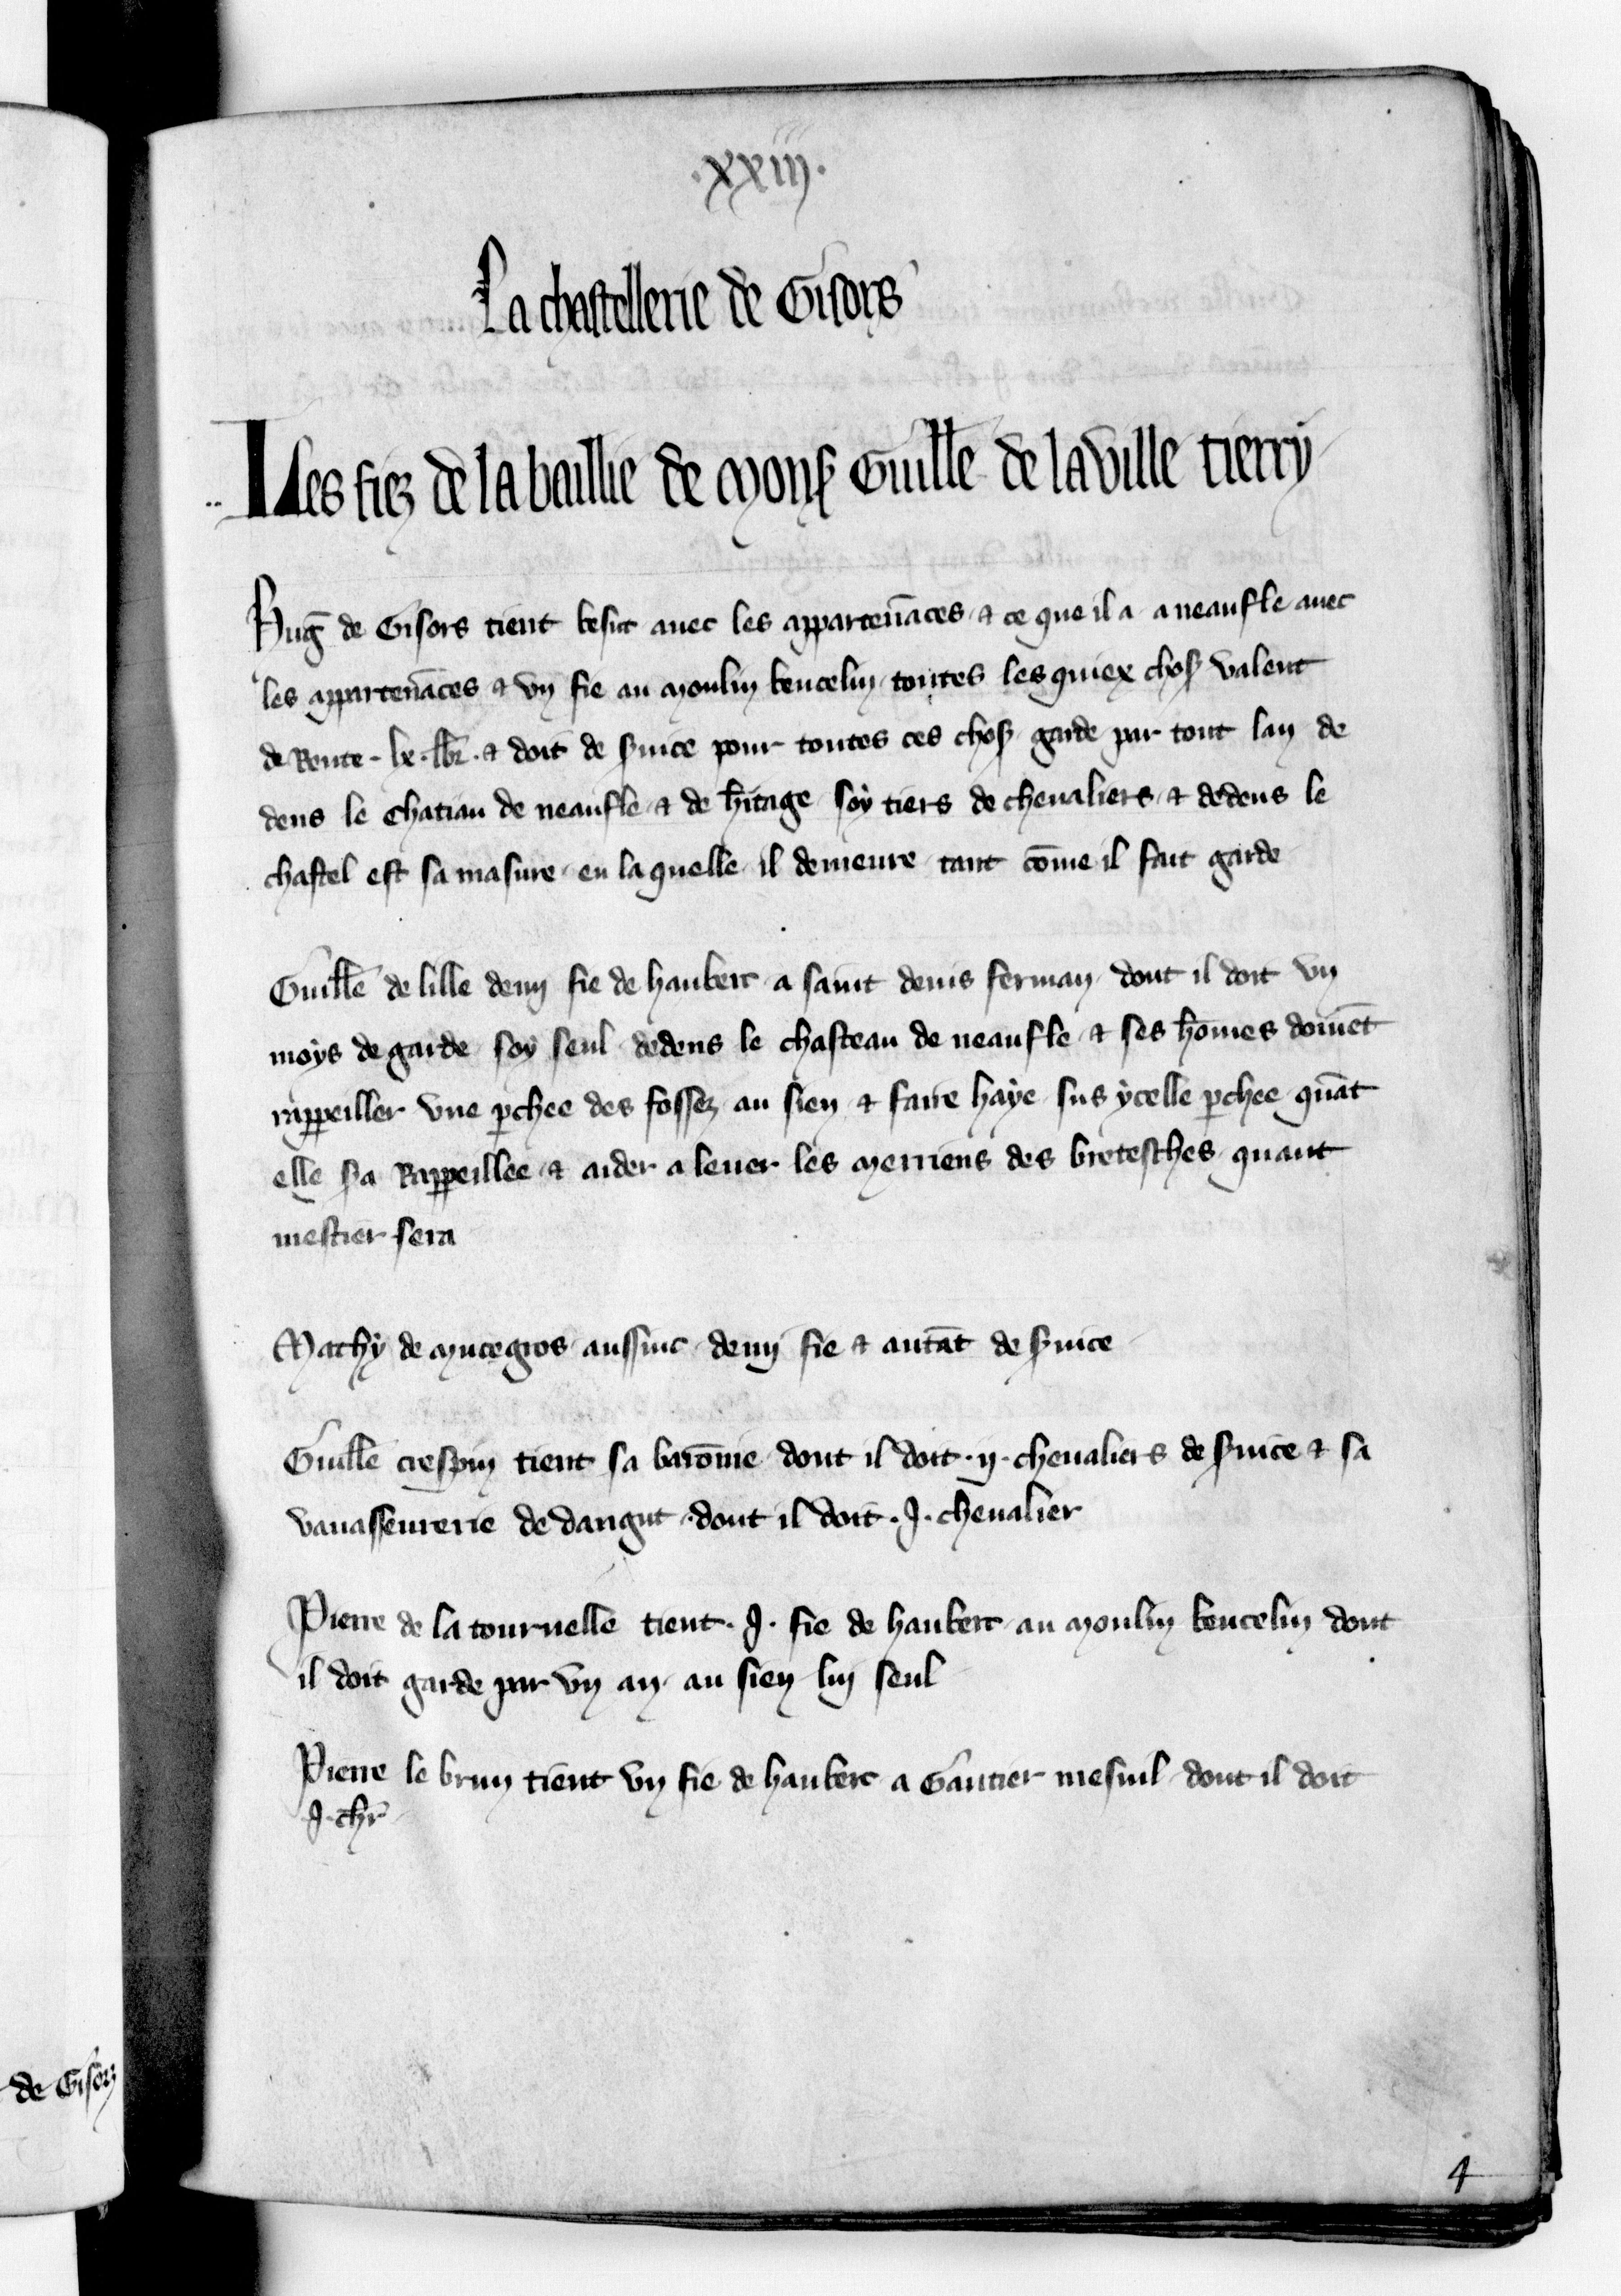 .xxiij.
La chastellerie de Gisors
Les fiez de la baillie de Mons Guille de la ville tierry
Hug̃ de Gisors tient besut auec les appartenãces & ce que il a a neaufle auec
les appartenãces & vn fie au moulin bencelin toutes les quiex chos valent
de Rente . lx . lbr̃ . & doit de s̃uice pour toutes ces chos garde par tout lan de
dens le Chatiau de neaufle & de h̃itage soy tiers de cheualiers & dedens le
chastel est sa masure en la quelle il demeure tant cõme il fait garde
Guill̃e de lille demj fie de haubert a saint denis ferman dont il doit vn
moys de garde soy seul dedens le chasteau de neaufle & ses hõmes doiuẽt
rappeiller vne p̱chee des fossez au sien & faire haye sus ycelle p̱chee quãt
elle s̃a Rappeillee & aider a leuer les merriens des bretesches quant
mestier sera
Mathy de mucegros aussinc demj fie & autãt de s̃uice
Guill̃e crespin tient sa barõnie dont il doit . ij . cheualiers de s̃uice & sa
vauasseurerie de dangut dont il doit . J . cheualier
Pierre de la tournelle tient . J . fie de haubert au moulin bencelin dont
il doit garde par vn an au sien luj seul
Pierre le brun tient vn fie de haubert a Gautier mesnil dont il doit
. J . ch̃r
de Gisorz
4